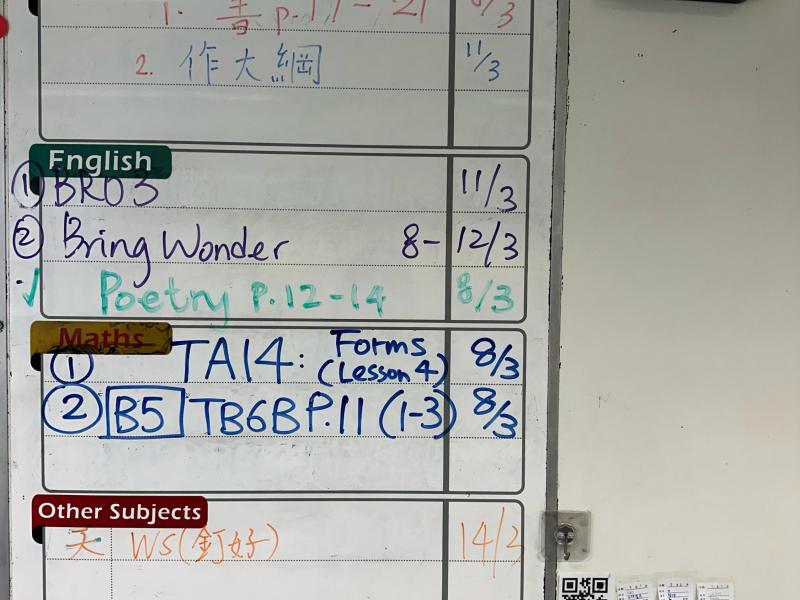 1. 書 p.17-21 8/3
2. 作大綱 11/3
English
① BR03 11/3
② Bring Wonder 8- 12/3
✓ Poetry P.12-14 8/3
Maths
① TA14: Forms (Lesson 4) 8/3
② B5 TB6B P.11 (1-3) 8/3
Other Subjects
WS(釘好) 14/3